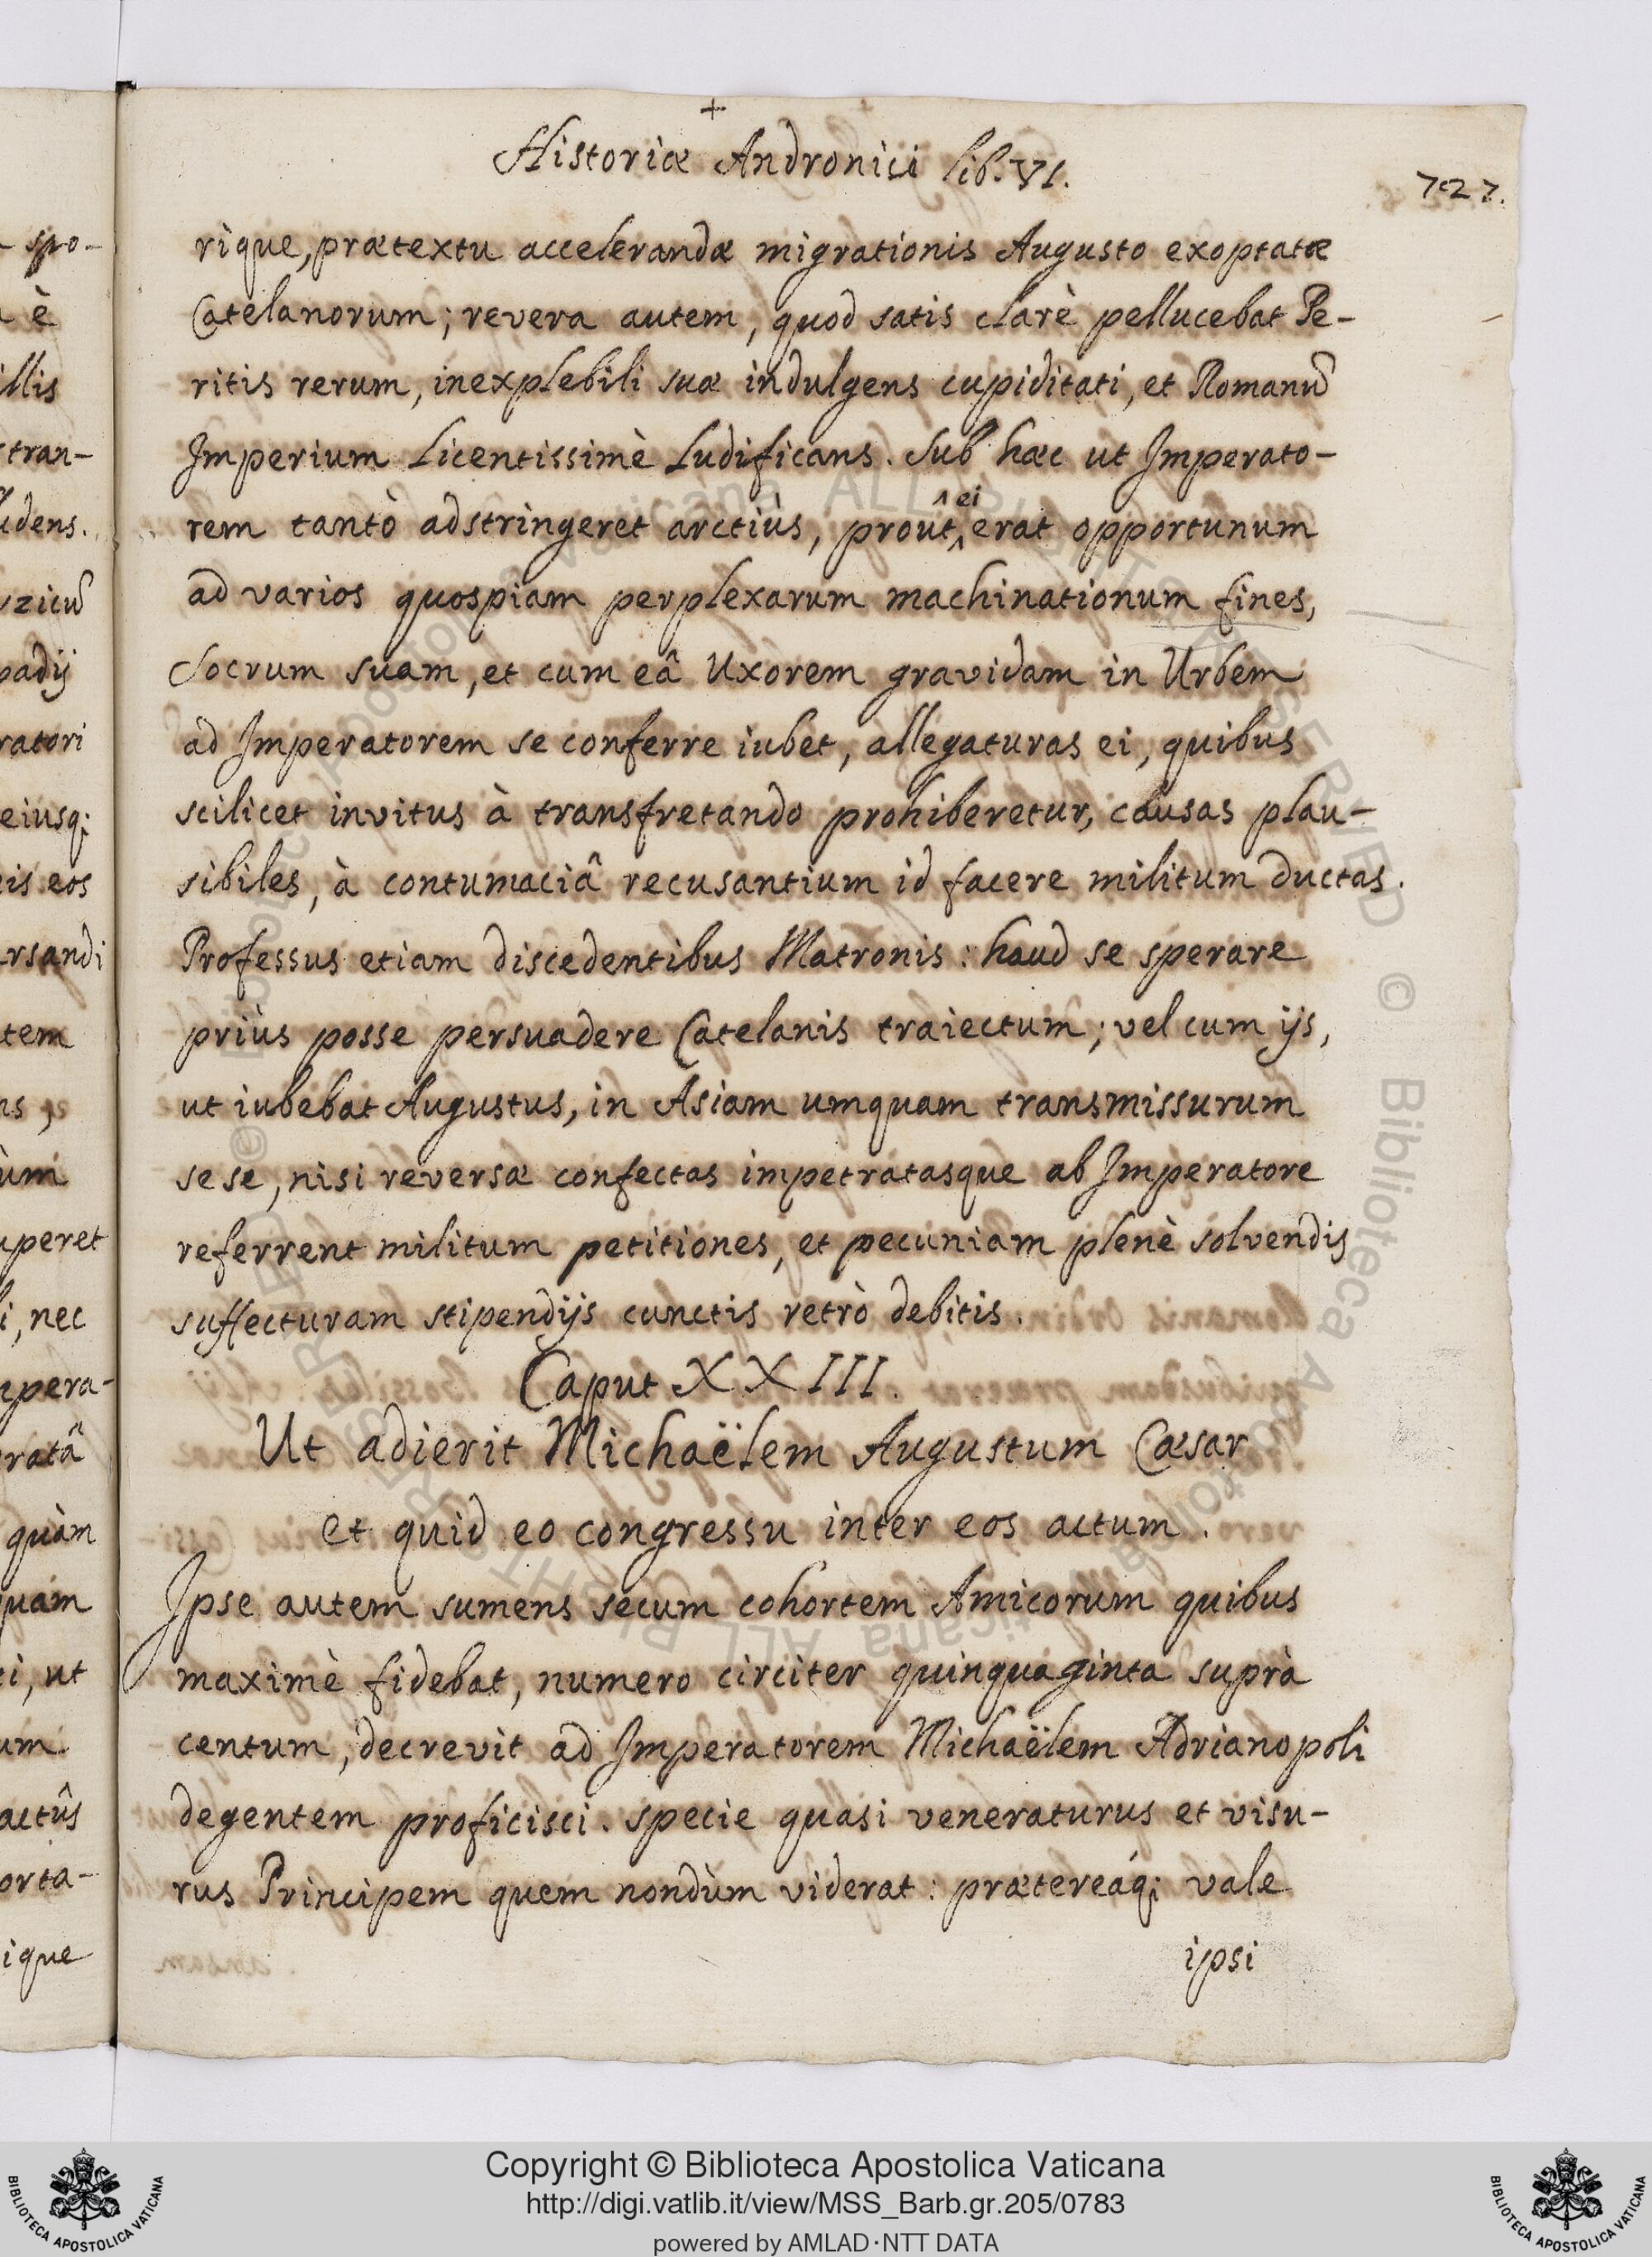 +
Historiæ Andronici lib. VI.
727.
rique, prætextu accelerandæ migrationis Augusto exoptatæ
Catelanorum; revera autem, quod satis clarè pellucebat Pe-
ritis rerum, inexplebili suæ indulgens cupiditati, et Romanũ
Imperium Licentissimè Ludificans. Sub hæc ut Imperato-
rem tantò adstringeret arctiùs, proût ei erat opportunum
ad varios quospiam perplexarum machinationum fines,
Socrum suam, et cum eâ Uxorem gravidam in Urbem
ad Imperatorem se conferre iubet, allegaturas ei, quibus
scilicet invitus à transfretando prohiberetur, causas plau-
sibiles, à contumaciâ recusantium id facere militum ductas.
Professus etiam discedentibus Matronis: haud se sperare
priùs posse persuadere Catelanis traiectum; vel cum ijs,
ut iubebat Augustus, in Asiam umquam transmissurum
sese, nisi reversæ confectas impetratasque ab Imperatore
referrent militum petitiones, et pecuniam plenè solvendis
suffecturam stipendijs cunctis retrò debitis.
Caput XXIII.
Ut adierit Michaëlem Augustum Cæsar
et quid eo congressu inter eos actum.
Ipse autem sumens secum cohortem Amicorum quibus
maximè fidebat, numero circiter quinquaginta suprà
centum, decrevit ad Imperatorem Michaëlem Adrianopoli
degentem proficisci. specie quasi veneraturus et visu-
rus Principem quem nondùm viderat: prætereáq; vale
ipsi
spo-
è
illis
stran-
udens.
yzicũ
padij
ratori
eiusq;
eis eos
rsandi
tem
ns,
ùm
uperet
i, nec
mpera-
ratâ
quàm
quam
ei, ut
um
actûs
orta-
ique
Copyright © Biblioteca Apostolica Vaticana
http://digi.vatlib.it/view/MSS_Barb.gr.205/0783
powered by AMLAD·NTT DATA
BIBLIOTECA APOSTOLICA VATICANA
BIBLIOTECA APOSTOLICA VATICANA